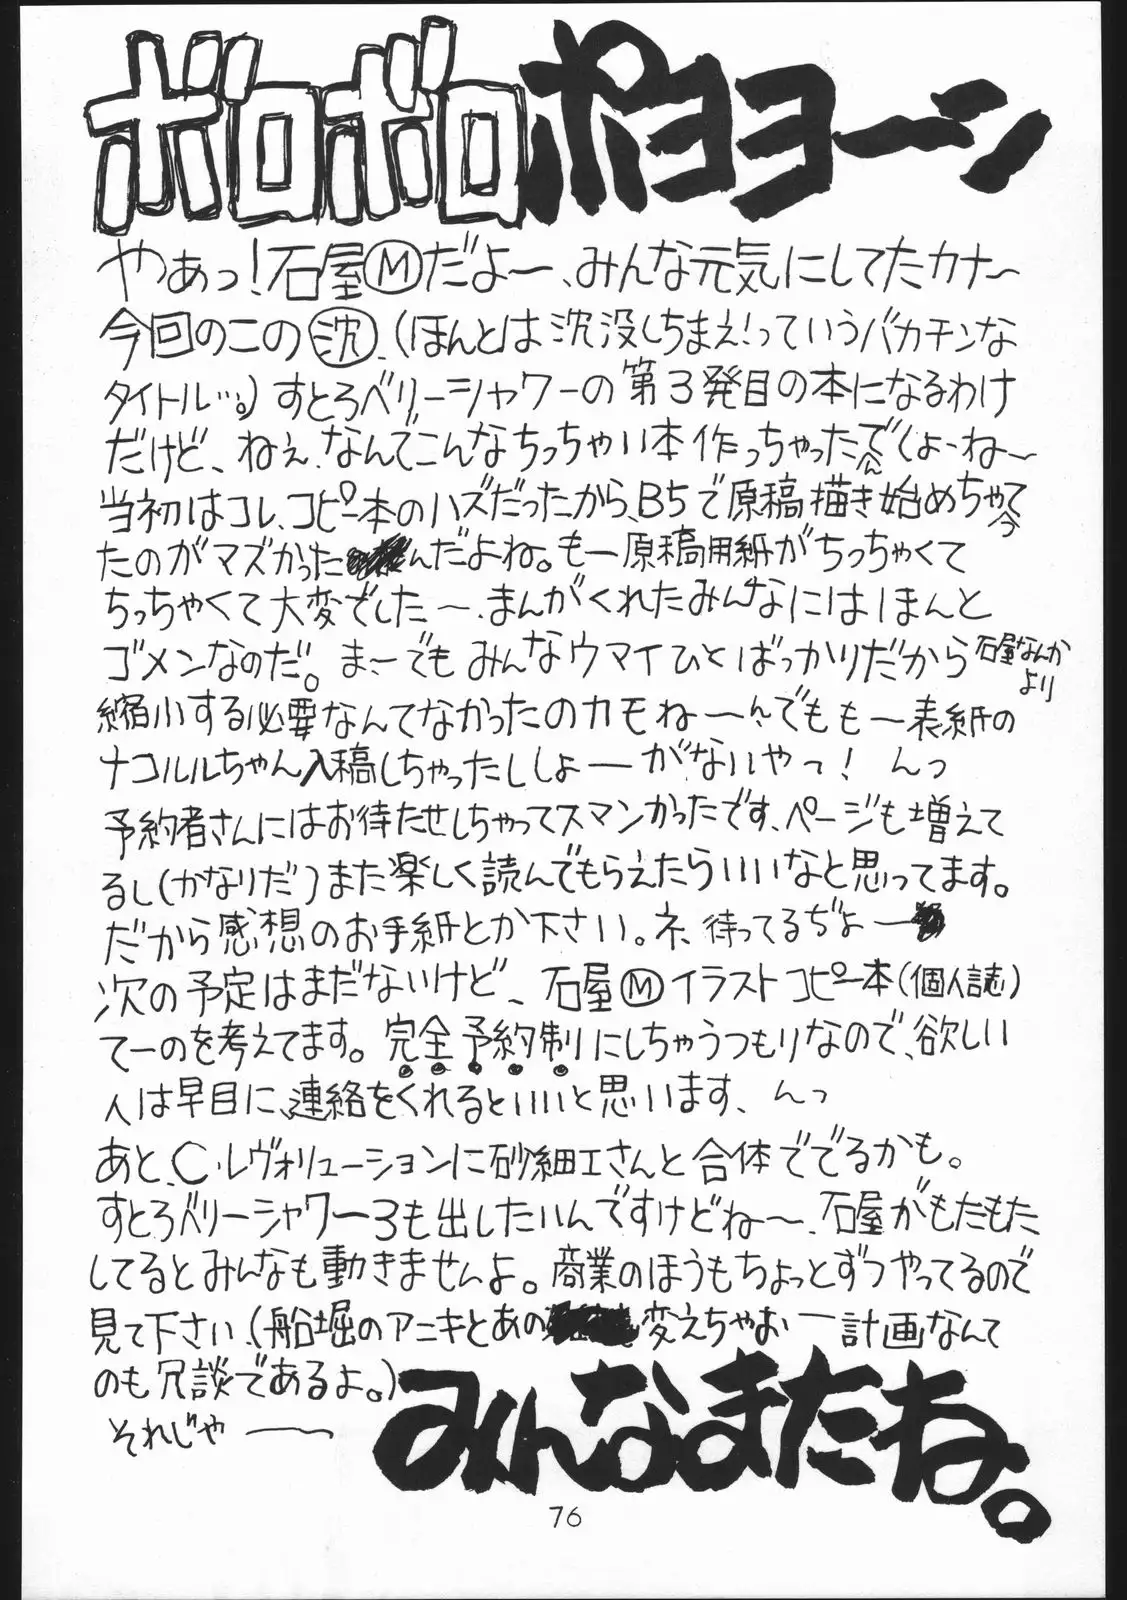 ボロボロポヨヨーン
やぁっ!石屋Ⓜだよ〜、みんな元気にしてたカナ〜
今回のこの沈、(ほんとは沈没しちまえ!っていうバカチンな
タイトル…。)すとろベリーシャワーの第3発目の本になるわけ
だけど、ねぇ、なんでこんなちっちゃい本作っちゃったでしょーね〜
ん
当初はコレ、コピー本のハズだったから、B5で原稿描き始めちゃて
今
たのがマズかったんだよね。もー原稿用紙がちっちゃくて
ちっちゃくて大変でした〜、まんがくれたみんなにはほんと
ゴメンなのだ。ま〜でもみんなウマイひとばっかりだから石屋なんか
より
縮小する必要なんてなかったのカモね〜ん、でもも一表紙の
ナコルルちゃん入稿しちゃったししょーがないやっ! んっ
予約者さんにはお待たせしちゃってスマンかったです、ページも増えて
るし(かなりだ)また楽しく読んでもらえたらいいなと思ってます。
だから感想のお手紙とか下さい。ネ、待ってるぢょー
次の予定はまだないけど、石屋Ⓜイラストコピー本(個人誌)
てーのを考えてます。完全予約制にしちゃうつもりなので、欲しい
人は早目に、連絡をくれるといいと思います、んっ
あと、C・レヴォリューションに砂細工さんと合体ででるかも。
すとろベリーシャワー3も出したいんですけどね〜、石屋がもたもた
してるとみんなも動きませんよ。商業のほうもちょっとずつやってるので
見て下さい、(船堀のアニキとあの変えちゃおー計画なんて
のも冗談であるよ。)
それじゃ——
みんなまたね。
76